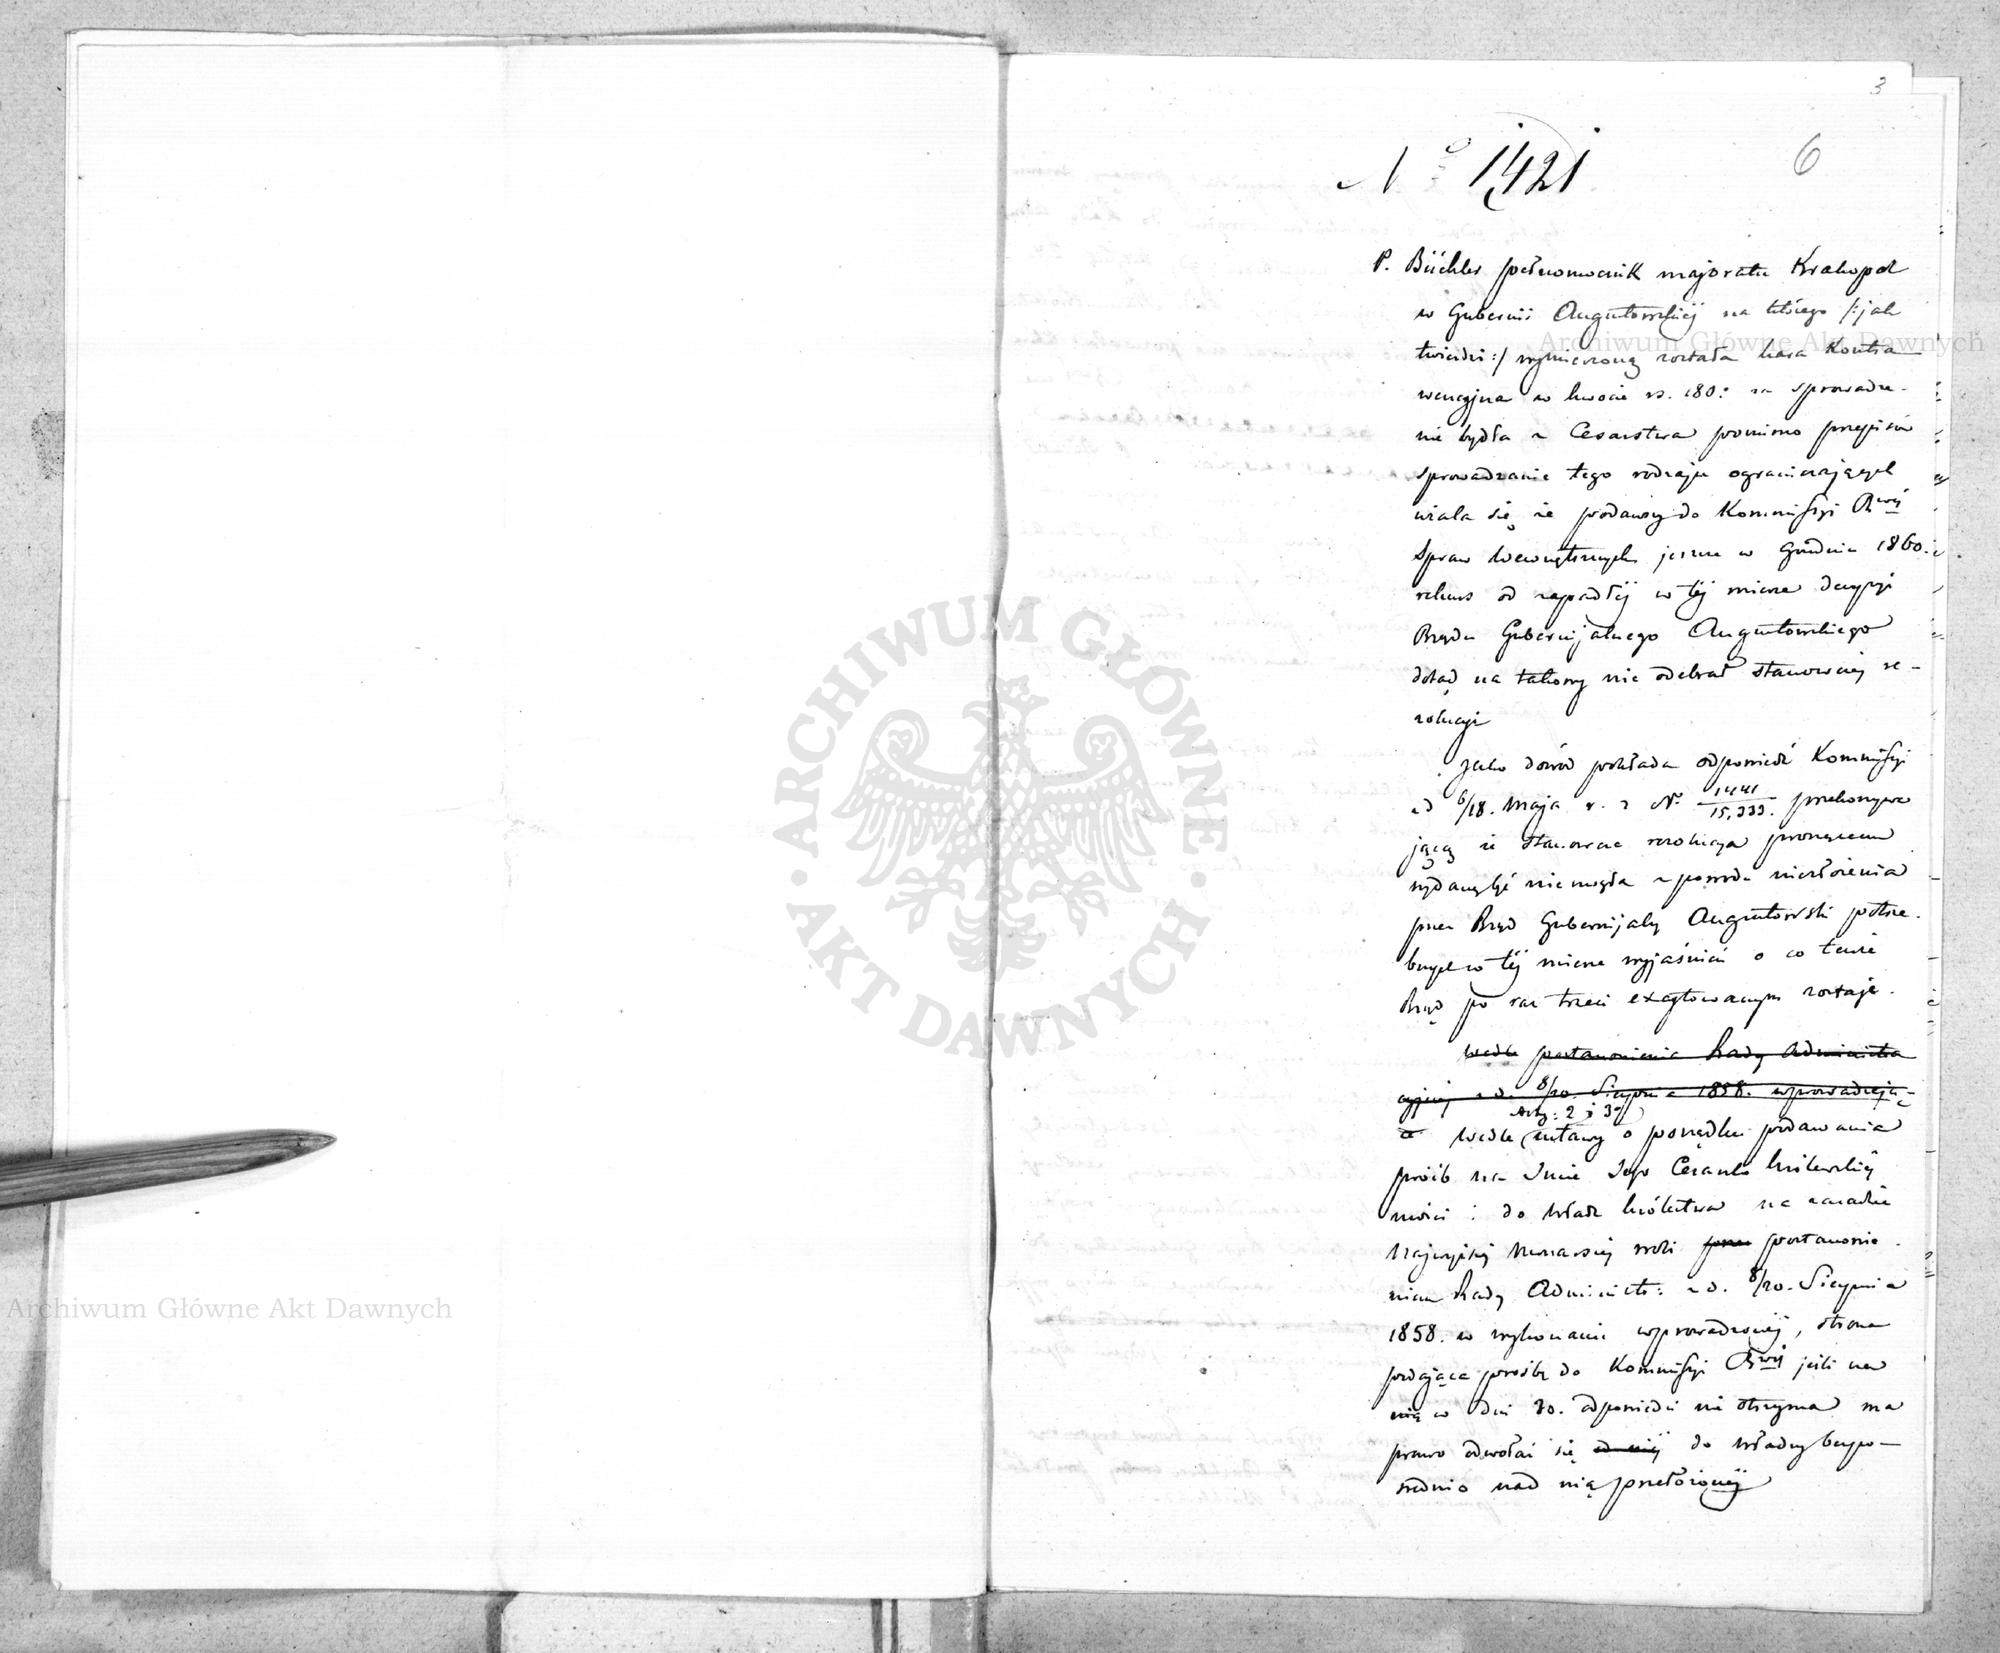 3
6
No 1421
P. Büchler pełnomocnik majoratu Krakopol
w Gubernii Augustowskiej na którego /:jak
twierdzi:/ wymierzoną została kara kontra
wencyjna w kwocie rs. 180: za sprowadze-
nie bydła z Cesarstwa pomimo przepisów
sprowadzanie tego rodzaju ograniczających
użala się że podawszy do Kommissyi Rwéj
Spraw Wewnętrznych jeszcze w Grudniu 1860.
rekurs od zapadłéj w téj mierze decyzyi
Rządu Gubernijalnego Augustowskiego
dotąd na takowy nie odebrał stanowczej re-
zolucyi
Jako dowód pokłada odpowiedź Kommissyi
z d 6/18. Maja r. z No 1441/15,333. przekonywa
jącą że stanowcza rezolucya proszącemu
wydaną być nie mogła z powodu niezłożenia
przez Rząd Gubernijalny Augustowski potrze-
bnych w téj mierze wyjaśnień o co tenże
Rząd po raz trzeci excytowanym zostaje.
wedle postanowienia Rady Administra
cyjnej z d. 8/20. Sierpnia 1858. wprowadzają-
Arty: 2 i 3go
ce Wedle ustawy o porządku podawania
próśb na Imie Jego Cesarsko Królewskiéj
Mości i do Władz Królestwa na zasadzie
Najwyższej Monarszej woli przez postanowie-
niem Rady Administr: z d. 8/20. Sierpnia
1858. w wykonanie wprowadzonéj, strona
podająca prośbę do Kommissyi Rwéj jeśli na
nią w dni 30. odpowiedzi nie otrzyma ma
prawo odwołać się od niéj do Władzy bezpo-
średnio nad nią przełożonéj
Archiwum Główne Akt Dawnych
Archiwum Główne Akt Dawnych
ARCHIWUM GŁÓWNE
AKT DAWNYCH